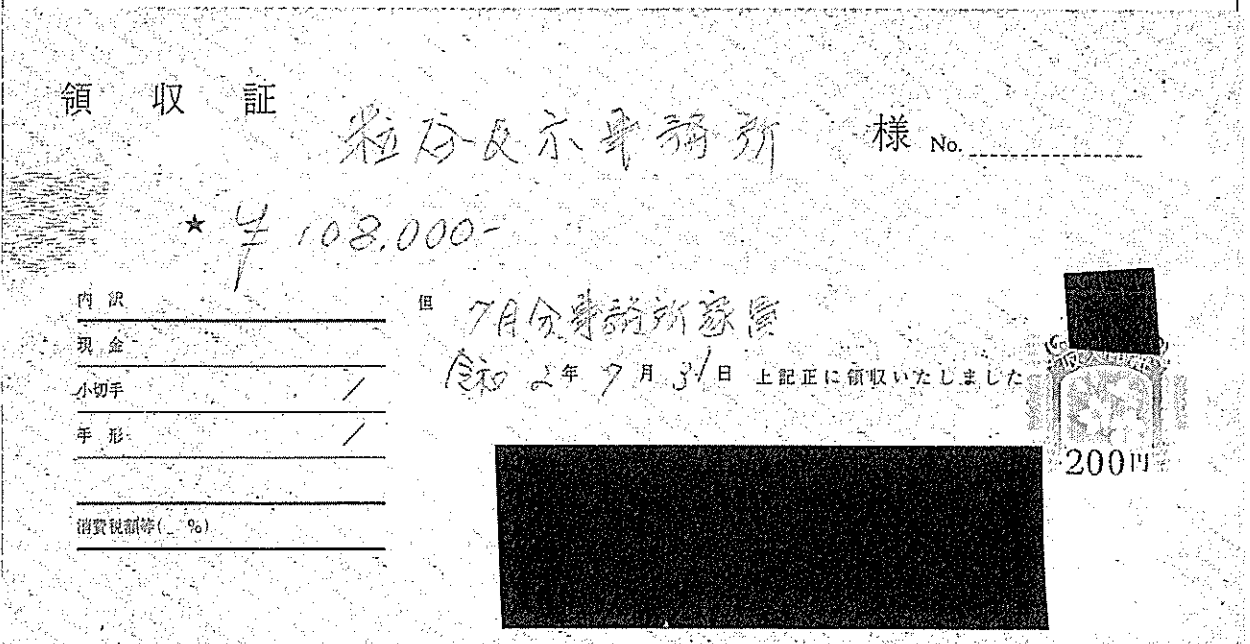 領 収 証
粒谷友示事務所 様 No.
★ ¥108,000-
内 訳
現 金
小切手 /
手 形 /
消費税額等( %)
但 7月分事務所家賃
令和 2年 7月 31日 上記正に領収いたしました
200円